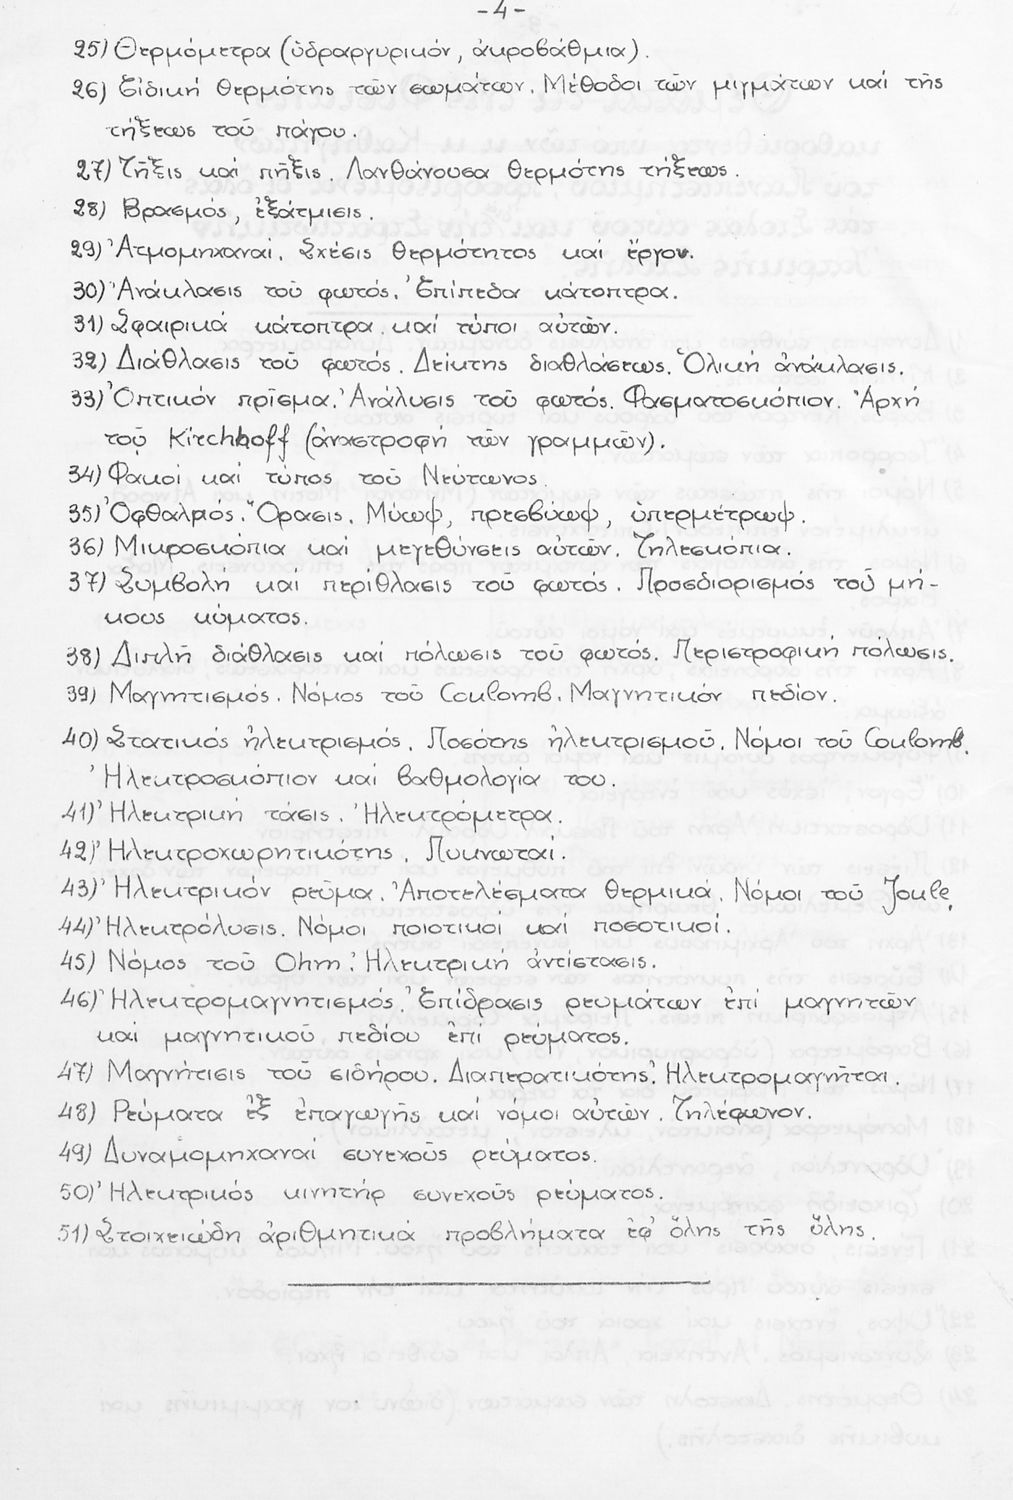 -4-
25) Θερμόμετρα (ὑδραργυρικόν, ἀκροβάθμια).
26) Εἰδική θερμότης τῶν σωμάτων. Μέθοδοι τῶν μιγμάτων καί τῆς
τήξεως τοῦ πάγου.
27) Τῆξις καί πῆξις. Λανθάνουσα θερμότης τήξεως.
28) Βρασμός, ἐξάτμισις.
29) Ἀτμομηχαναί. Σχέσις θερμότητος καί ἔργου.
30) Ἀνάκλασις τοῦ φωτός. Ἐπίπεδα κάτοπτρα.
31) Σφαιρικά κάτοπτρα καί τύποι αὐτῶν.
32) Διάθλασις τοῦ φωτός. Δείκτης διαθλάσεως. Ὁλική ἀνάκλασις.
33) Ὀπτικόν πρῖσμα. Ἀνάλυσις τοῦ φωτός. Φασματοσκόπιον. Ἀρχή
τοῦ Kirchhoff (ἀναστροφή τῶν γραμμῶν).
34) Φακοί καί τύπος τοῦ Νεύτωνος.
35) Ὀφθαλμος. Ὅρασις. Μύωψ, πρεσβύωψ, ὑπερμέτρωψ.
36) Μικροσκόπια καί μεγεθύνσεις αὐτῶν. Τηλεσκόπια.
37) Συμβολη και περιθλασις τοῦ φωτός. Προσδιορισμός τοῦ μή-
κους κύματος.
38) Διπλῆ διάθλασις καί πόλωσις τοῦ φωτός. Περιστροφική πόλωσις.
39) Μαγνητισμός. Νόμος τοῦ Coulomb. Μαγνητικόν πεδίον.
40) Στατικός ἠλεκτρισμός. Ποσότης ἠλεκτρισμοῦ. Νόμοι τοῦ Coulomb.
Ἠλεκτροσκόπιον καί βαθμολογία του.
41) Ἠλεκτρική τάσις. Ἠλεκτρόμετρα.
42) Ἠλεκτροχωρητικότης. Πυκνωταί.
43) Ἠλεκτρικόν ρεῦμα. Ἀποτελέσματα θερμικά. Νόμοι τοῦ Joule.
44) Ἠλεκτρόλυσις. Νόμοι ποιοτικοί καί ποσοτικοί.
45) Νόμος τοῦ Ohm. Ἠλεκτρική ἀντίστασις.
46) Ἠλεκτρομαγνητισμός. Ἐπίδρασις ρευμάτων ἐπί μαγνητῶν
καί μαγνητικοῦ πεδίου ἐπί ρεύματος.
47) Μαγνήτισις τοῦ σιδήρου. Διαπερατικότης. Ἠλεκτρομαγνῆται.
48) Ρεύματα ἐξ ἐπαγωγῆς καί νόμοι αὐτῶν. Τηλέφωνον.
49) Δυναμομηχαναί συνεχοῦς ρεύματος.
50) Ἠλεκτρικός κινητήρ συνεχοῦς ρεύματος.
51) Στοιχειώδη ἀριθμητικά προβλήματα ἐφ' ὅλης τῆς ὕλης.